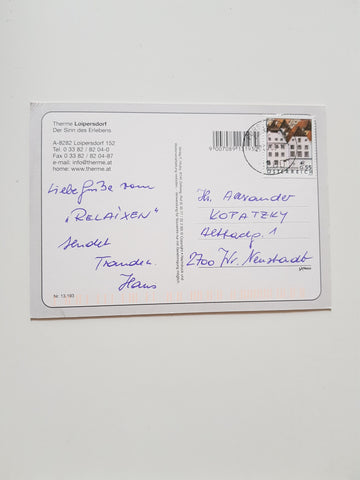 Therme Loipersdorf
Der Sinn des Erlebens
A-8282 Loipersdorf 152
Tel. 0 33 82 / 82 04-0
Fax 0 33 82 / 82 04-87
e-mail: info@therme.at
home: www.therme.at
Liebe Grüße vom
„RELAIXEN"
sendet
Hans
Nr. 13.193
ÖSTERREICH
0,55
Hr. Alexander
KOPATZKY
2700 Wr. Neustadt